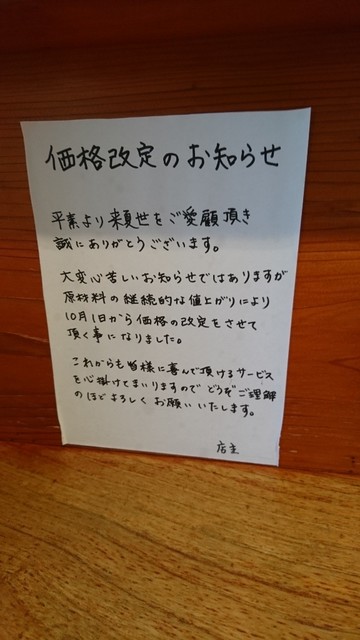 価格改定のお知らせ
平素より来夢世をご愛顧頂き
誠にありがとうございます。
大変心苦しいお知らせではありますが
原材料の継続的な値上がりにより
10月1日から価格の改定をさせて
頂く事になりました。
これからも皆様に喜んで頂けるサービス
を心掛けてまいりますので どうぞご理解
のほど よろしく お願い いたします。
店主